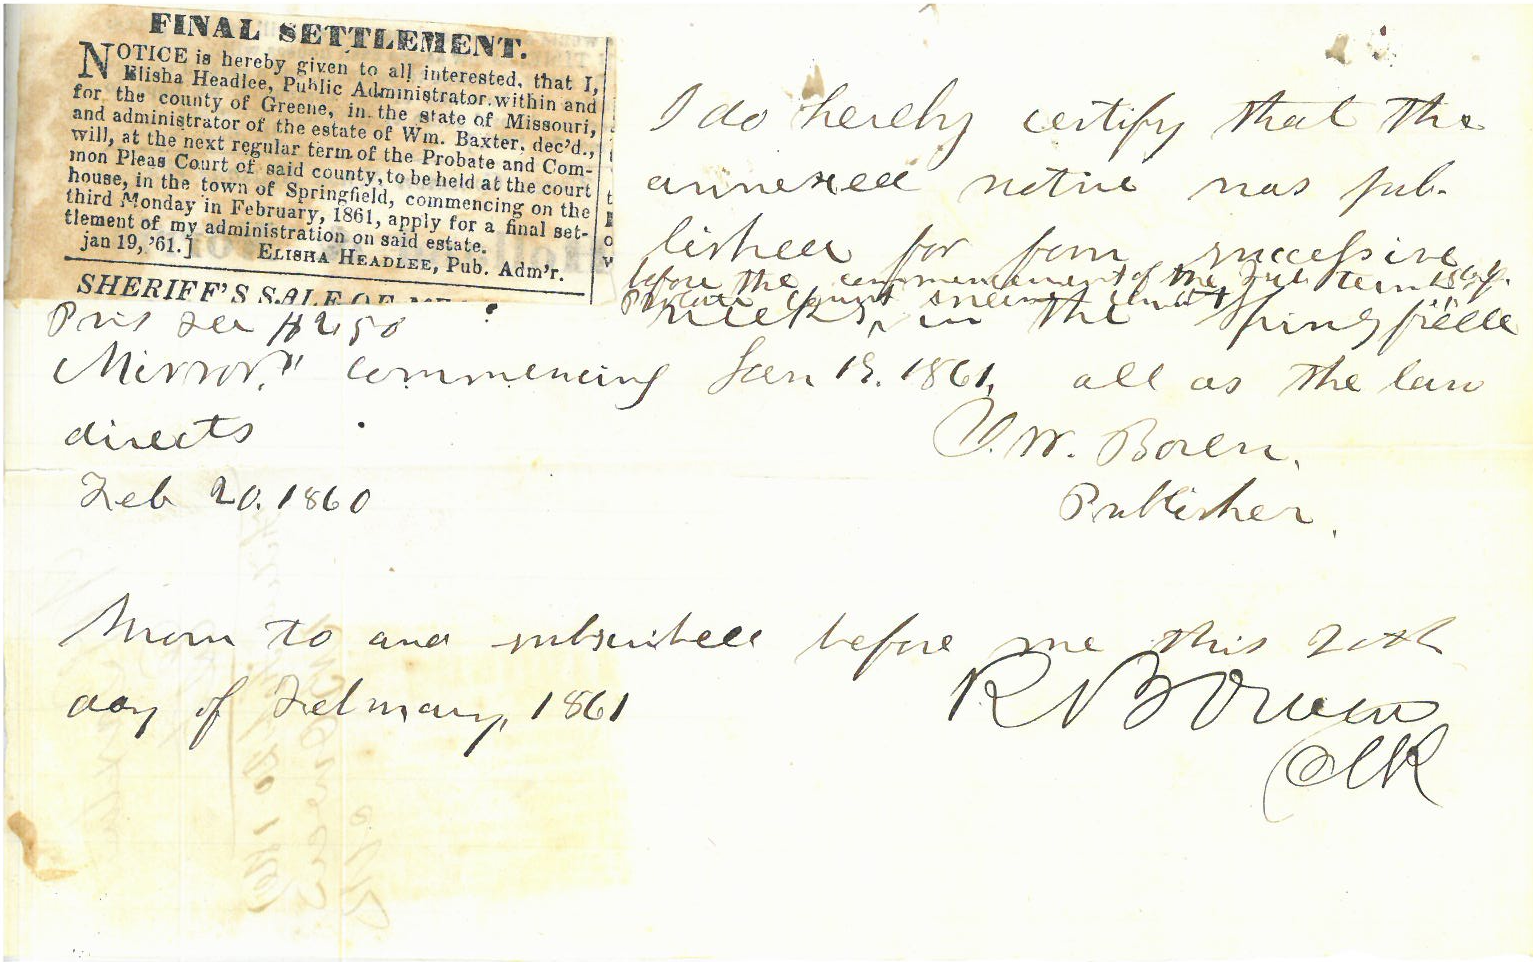 FINAL SETTLEMENT.
NOTICE is hereby given to all interested, that I,
Elisha Headlee, Public Administrator within and
for the county of Greene, in the state of Missouri,
and administrator of the estate of Wm. Baxter, dec'd.,
will, at the next regular term of the Probate and Com-
mon Pleas Court of said county, to be held at the court
house, in the town of Springfield, commencing on the
third Monday in February, 1861, apply for a final set-
tlement of my administration on said estate.
jan 19, '61.] ELISHA HEADLEE, Pub. Adm'r.
SHERIFF'S SALE OF
I do hereby certify that the
annexed notice was pub-
lished for four successive
before the commencement of the Feb term 1861 of
Probate court
weeks, in the Springfield
Prts fee $2.50
Mirror," commencing Jan 19. 1861, all as the law
directs
J. W. Boren.
Feb 20. 1860
Publisher.
Sworn to and subscribed before me this 20th
day of February, 1861
Clk